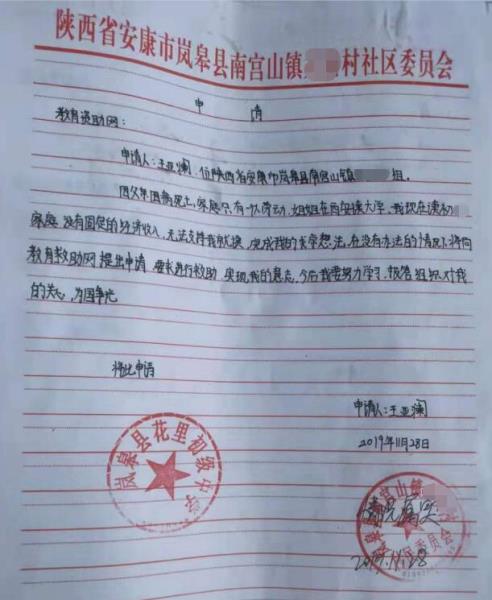 陕西省安康市岚皋县南宫山镇 村社区委员会
申 请
教育资助网：
申请人：王亚澜，位陕西省安康市岚皋县南宫山镇 组。
因父年因病死亡，家庭只有一人劳动，姐姐在西安读大学，我现在读初
家庭没有固定的经济收入，无法支持我就读，完成我的求学想法，在没有办法的情况下将向
教育救助网提出申请 要求进行救助 实现我的意志，今后我要努力学习，报答组织对我
的关心，为国争光
将此申请
申请人：王亚澜
2019年11月28日
岚皋县花里初级中学
情况属实
岚皋县南宫山镇 委员会
2019.11.28